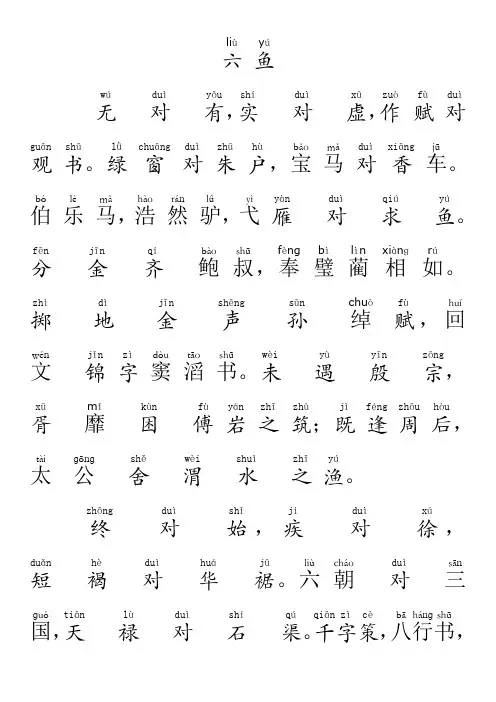 liù yú
六 鱼
wú duì yǒu shí duì xū zuò fù duì
无 对 有，实 对 虚，作 赋 对
guān shū lǜ chuāng duì zhū hù bǎo mǎ duì xiāng jū
观 书。绿 窗 对 朱 户，宝 马 对 香 车。
bó lè mǎ hào rán lǘ yì yàn duì qiú yú
伯 乐 马，浩 然 驴，弋 雁 对 求 鱼。
fēn jīn qí bào shū fèng bì lìn xiàng rú
分 金 齐 鲍 叔，奉 璧 蔺 相 如。
zhì dì jīn shēng sūn chuò fù huí
掷 地 金 声 孙 绰 赋，回
wén jǐn zì dòu tāo shū wèi yù yīn zōng
文 锦 字 窦 滔 书。未 遇 殷 宗，
xū mí kùn fù yán zhī zhù jì féng zhōu hòu
胥 靡 困 傅 岩 之 筑；既 逢 周 后，
tài gōng shě wèi shuǐ zhī yú
太 公 舍 渭 水 之 渔。
zhōng duì shǐ jí duì xú
终 对 始，疾 对 徐，
duǎn hè duì huá jū liù cháo duì sān
短 褐 对 华 裾。六 朝 对 三
guó tiān lù duì shí qú qiān zì cè bā háng shū
国，天 禄 对 石 渠。千 字 策，八 行 书，